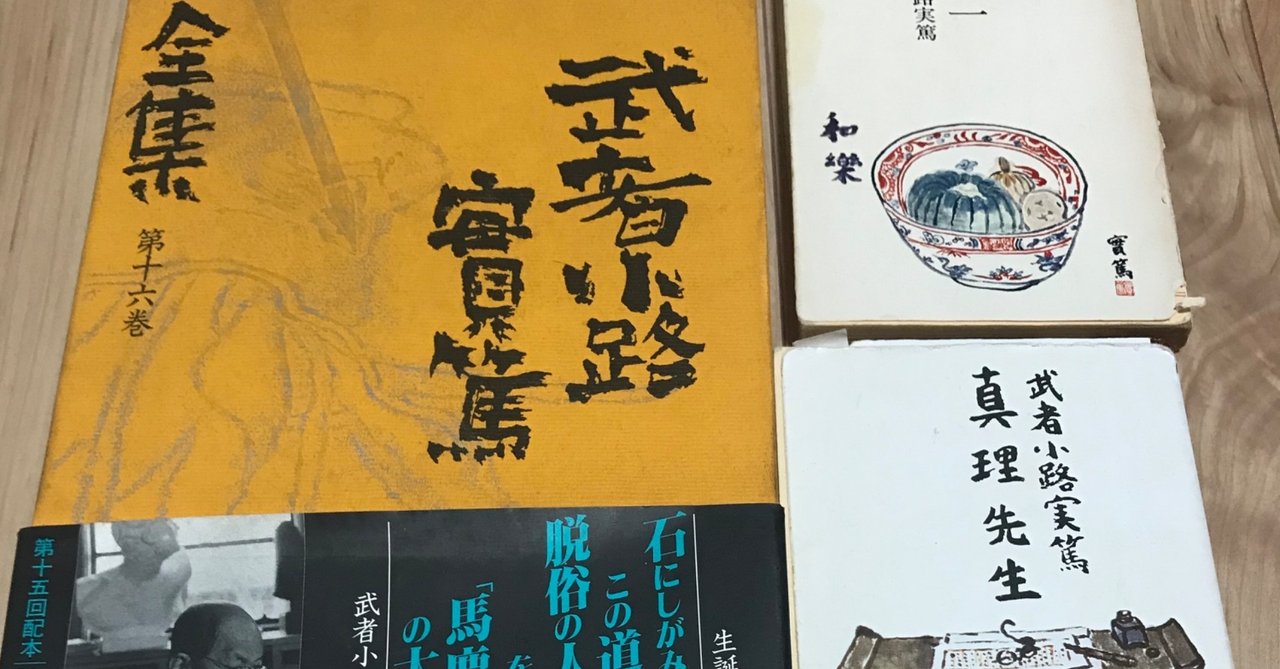 武者小路
實篤
全集
第十六巻
生誕
石にしがみ
この道
脱俗の人
を
「馬鹿
の大
武者小
第十五回配本
一
路実篤
和樂
實篤
武者小路実篤
真理先生